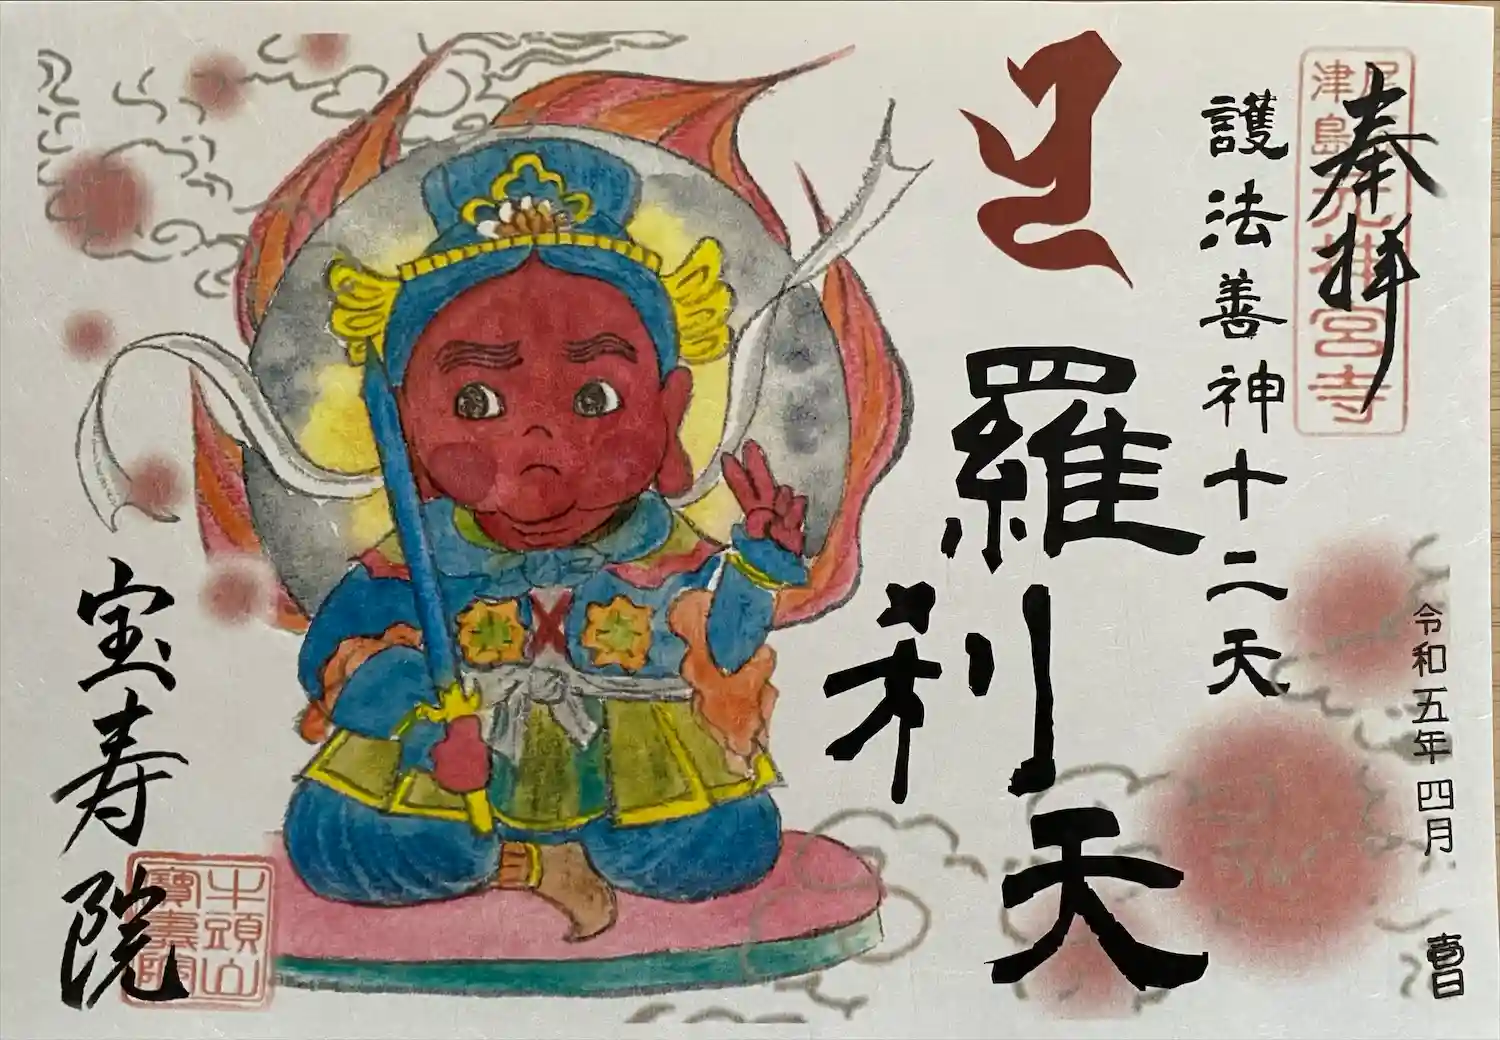 奉拝
尾張
津島
元神宮寺
護法善神十二天
羅利天
令和五年四月
壱日
宝寿院
牛頭山
寶壽院